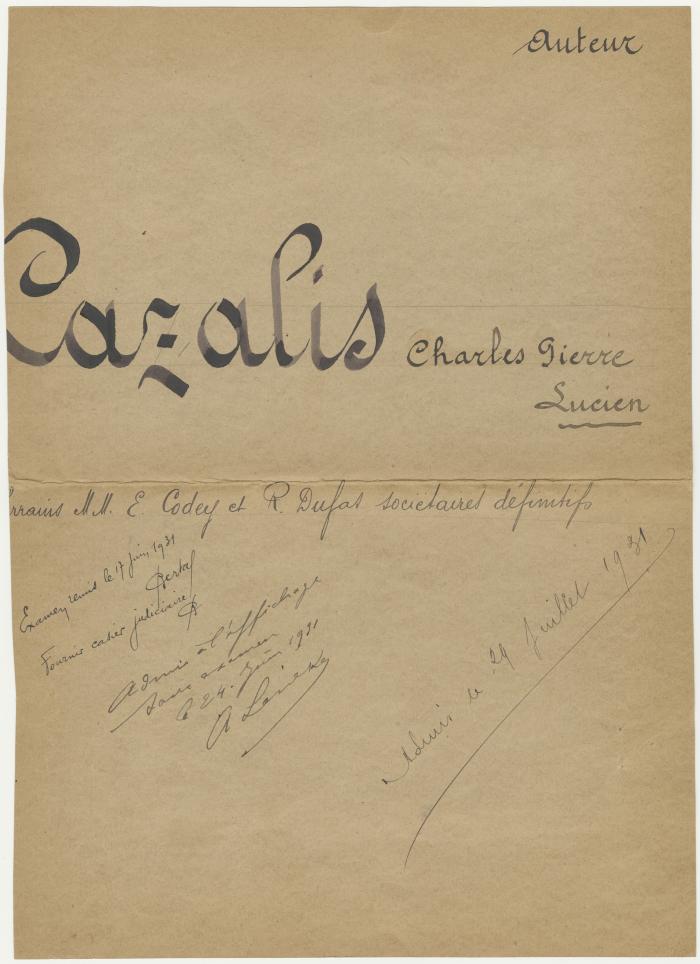 Auteur
Cazalis Charles Pierre
Lucien
rrains MM. E. Codey et R. Dufas sociétaires définitifs
Examen, remis le 17 Juin 1931
Fournir casier judiciaire
Admis à l'affichage
sans examen
le 24. Juin 1931
Admis le 29 Juillet 1931